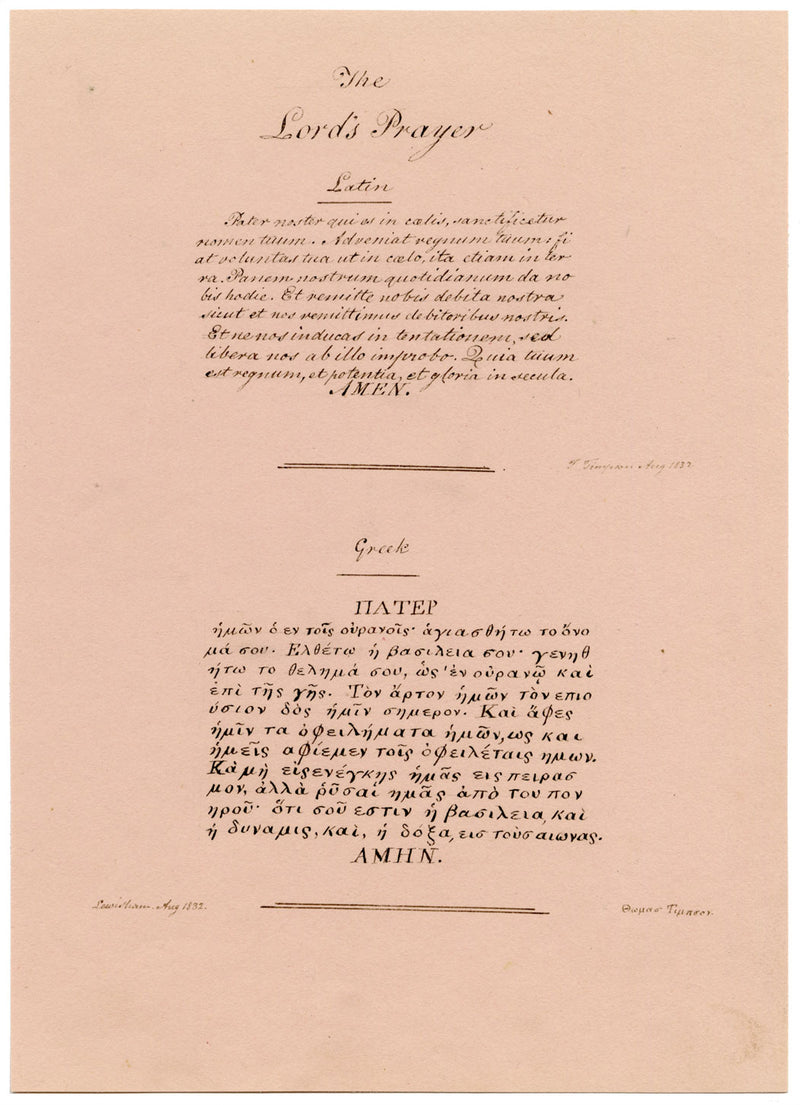 The
Lord's Prayer
Latin
Pater noster qui es in cælis, sanctificetur
nomen tuum. Adveniat regnum tuum: fi
at voluntas tua ut in cælo, ita etiam in ter
ra. Panem nostrum quotidianum da no
bis hodie. Et remitte nobis debita nostra
sicut et nos remittimus debitoribus nostris.
Et ne nos inducas in tentationem, sed
libera nos ab illo improbo. Quia tuum
est regnum, et potentia, et gloria in secula.
AMEN.
T Timpson Aug 1832
Greek
ΠΑΤΕΡ
ἡμῶν ὁ εν τοῖς οὐρανοῖς· ἁγιασθήτω το ὄνο
μά σου. Ελθέτω ἡ βασιλεια σου· γενηθ
ήτω το θελημά σου, ὡς ἐν οὐρανῷ καὶ
ἐπὶ τῆς γῆς. Τὸν ἄρτον ἡμῶν τὸν επιο
ύσιον δὸς ἡμῖν σημερον. Καὶ ἄφες
ἡμῖν τα ὀφειλήματα ἡμῶν, ως και
ἡμεῖς αφίεμεν τοῖς ὀφειλέταις ημων.
Κὰ μὴ εἰςενέγκης ἡμᾶς εις πειρασ
μον, ἀλλὰ ῥῦσαί ημᾶς ἀπὸ του πον
ηροῦ· ὅτι σοῦ εστιν ἡ βασιλεια, καὶ
ἡ δυναμις, καὶ, ἡ δόξα, εις τοὺσαιωνας.
ΑΜΗΝ.
Lewisham. Aug 1832.
Θωμασ Τιμπσον.